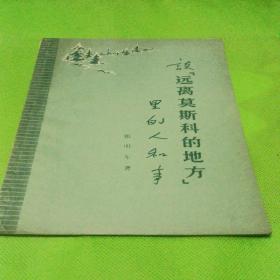 谈“远离莫斯科的地方”
里的人和事
著